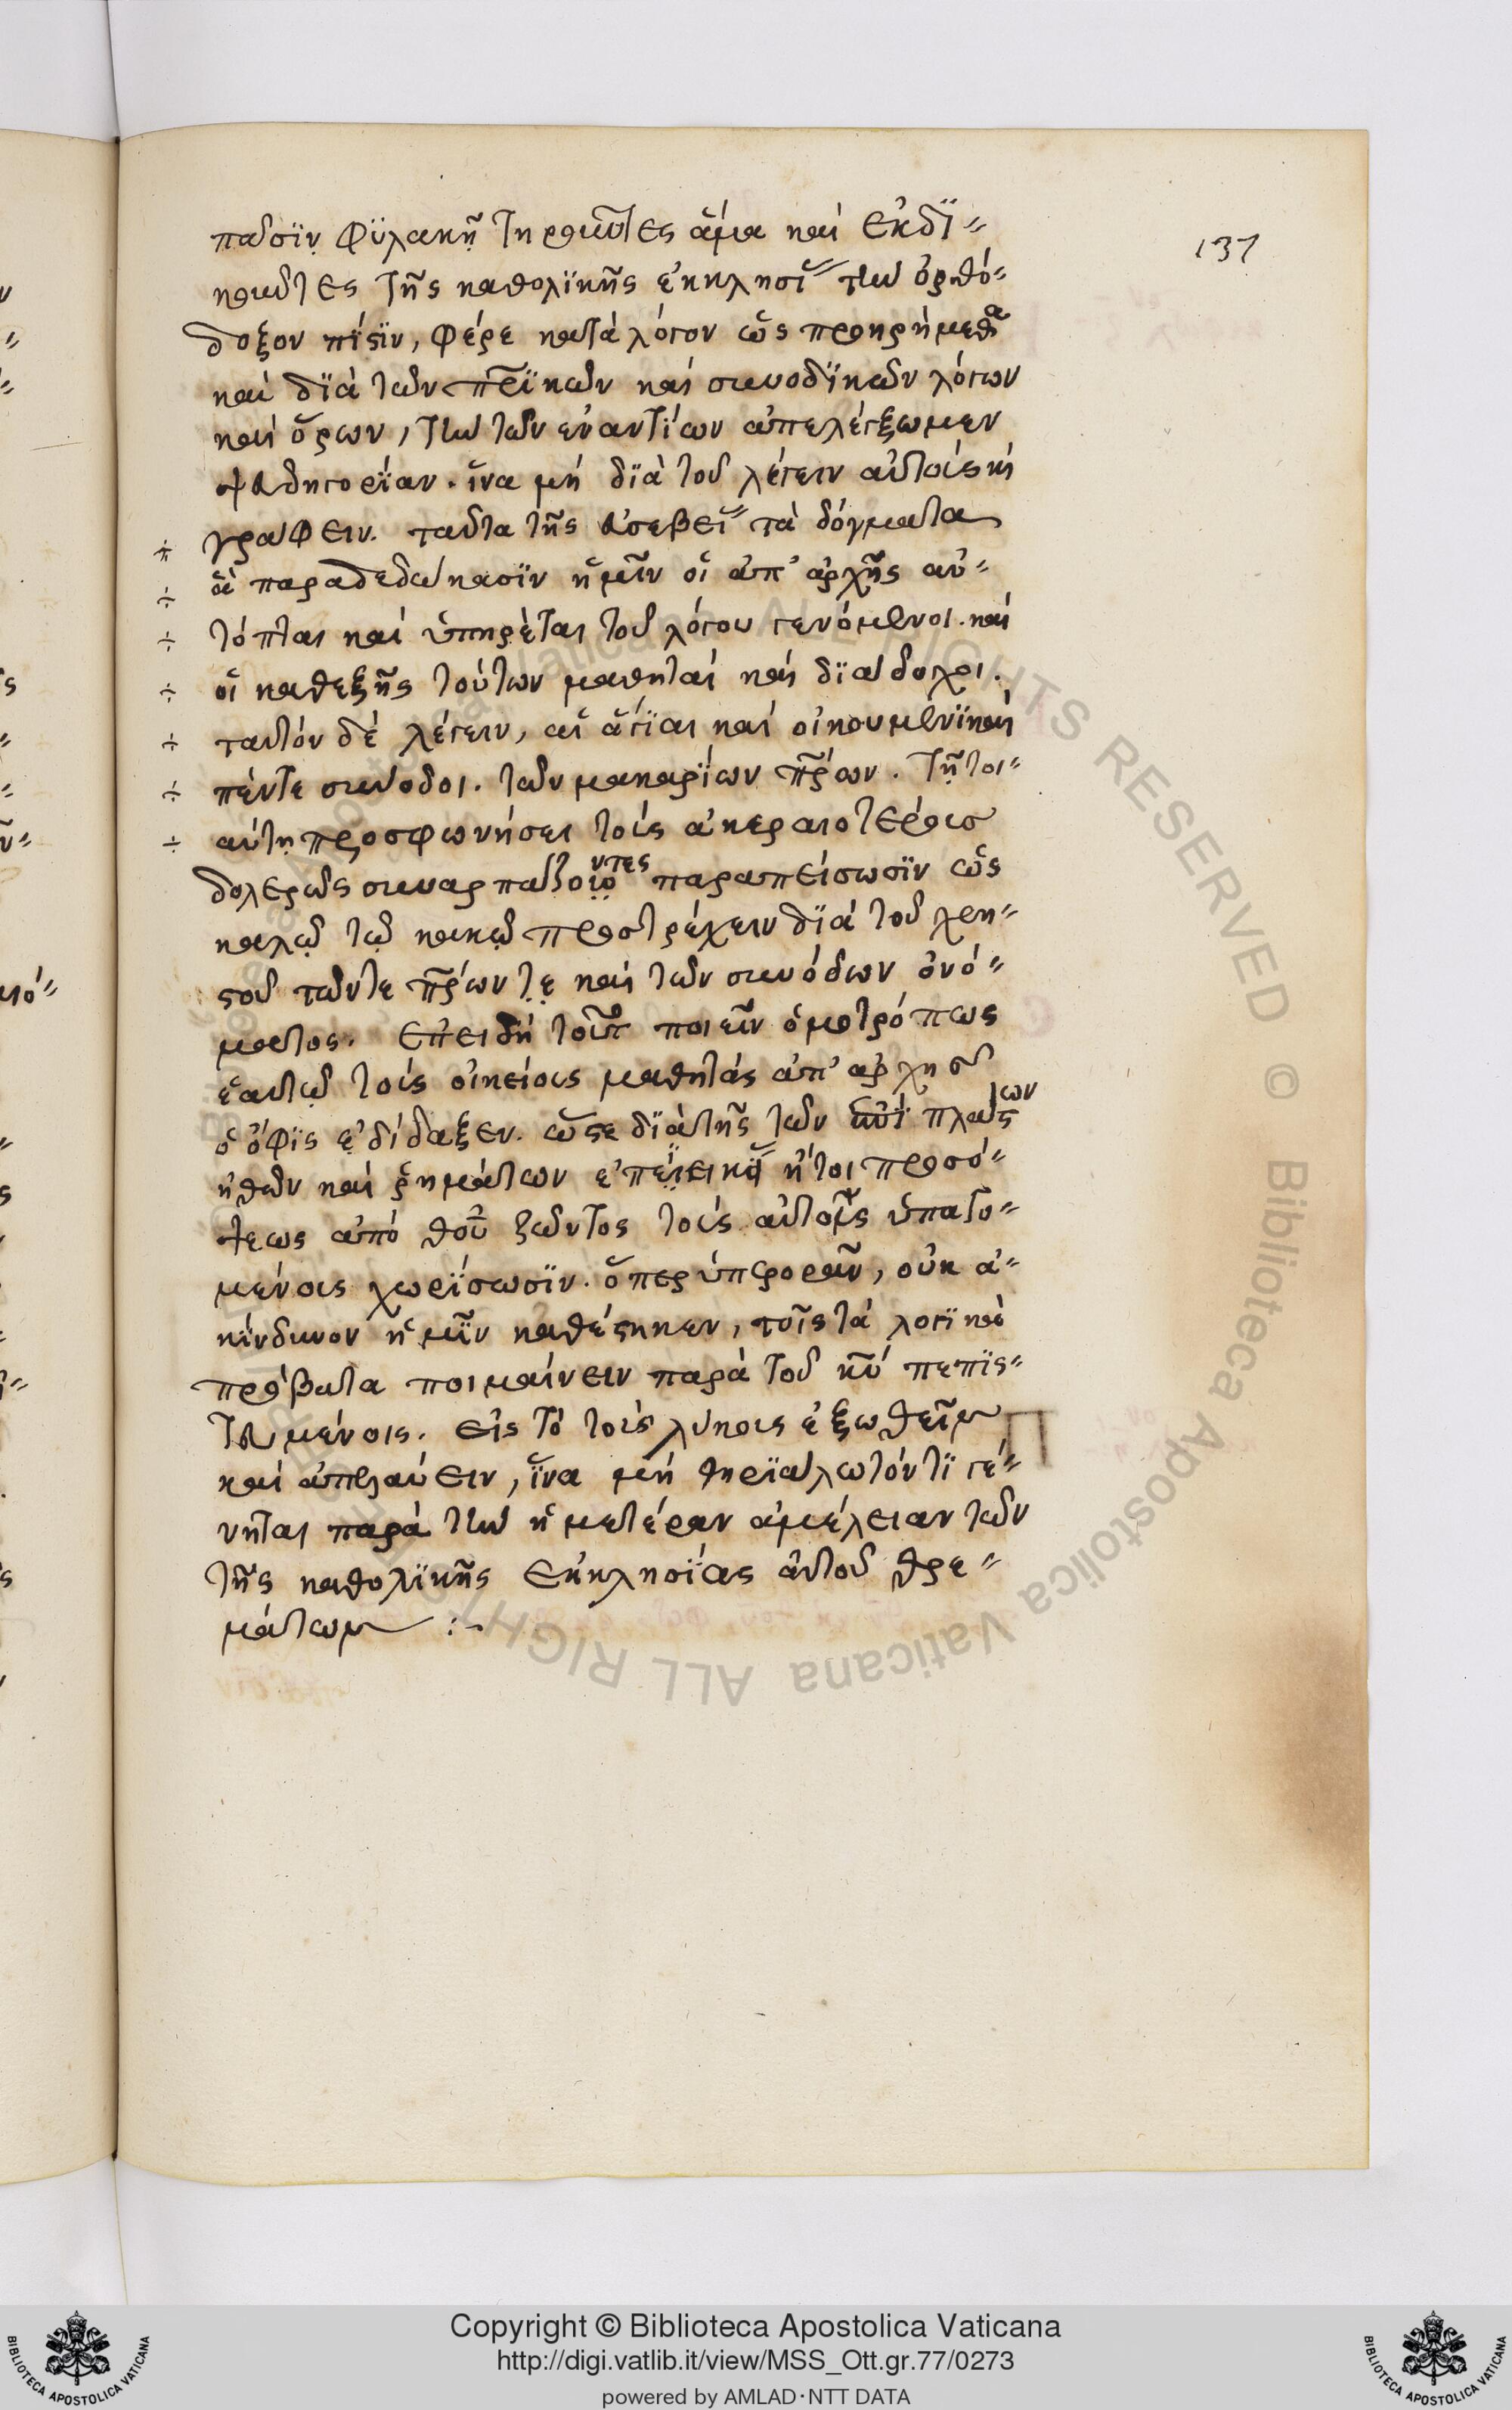 137
πάσϊν φϋλακῆ τηροῦντες ἅμα καὶ ἐκδϊ〃
κοῦντες τῆς καθολϊκῆς ἐκκλησί τὴν ὀρθό〃
δοξον πίστϊν, φέρε κατὰ λόγον ὡς προηρήμεθα
καὶ δϊὰ τῶν πρϊκῶν καὶ συνοδϊκῶν λόγων
καὶ ὅρων, τὴν τῶν ἐναντίων ἀπελέγξωμεν
ψευδηγορίαν. ἵνα μὴ δϊὰ τοῦ λέγειν αὐτοὺς κὴ
γράφειν. ταῦτα τῆς εὐσεβεί τὰ δόγματα
ἃ παραδεδώκασϊν ἡμῖν οἱ ἀπ' ἀρχῆς αὐ〃
τόπται καὶ ὑπηρέται τοῦ λόγου γενόμενοι. καὶ
οἱ καθεξῆς τούτων μαθηταὶ καὶ δϊάδοχοι.
ταυτὸν δὲ λέγειν, αἱ ἅγϊαι καὶ οἰκουμενϊκαὶ
πέντε σύνοδοι. τῶν μακαρίων πρων. τῇ τοι〃
αύτῃ προσφωνήσει τοὺς ἀκεραιοτέρους
δολερῶς συναρπάζοντες παραπείσωσϊν ὡς
καλῷ τῷ κακῷ προστρέχειν δϊὰ τοῦ χρη〃
στοῦ τῶντε πρων τε καὶ τῶν συνόδων ὀνό〃
ματος. ἐπειδὴ τοῦτο ποιεῖν ὁμοτρόπως
ἑαυτῷ τοὺς οἰκείους μαθητὰς ἀπ' ἀρχῆς
ὁ ὄφϊς ἐδίδαξεν. ὥστε δϊὰ τῆς τῶν πλάστων
ἠθῶν καὶ ῥημάτων ἐπϊεικεί ἤτοι πραό〃
τητος ἀπὸ θοῦ ζῶντος τοὺς αὐτοῖς ὑπαγο〃
μένους χωρίσωσϊν. ὅπερ ὑπερορᾶν, οὐκ ἀ〃
κίνδυνον ἡμῖν καθέστηκεν, τοῖς τὰ λογϊκὰ
πρόβατα ποιμαίνειν παρὰ τοῦ κυ πεπϊς〃
τευμένοις. εἰς τὸ τοὺς λύκους ἐξωθεῖν
καὶ ἀπελαύειν, ἵνα μὴ θηρϊάλωτόν τϊ γέ〃
νηται παρὰ τὴν ἡμετέραν ἀμέλειαν τῶν
τῆς καθολϊκῆς ἐκκλησίας αὐτοῦ θρε〃
μάτων :~
Copyright © Biblioteca Apostolica Vaticana
http://digi.vatlib.it/view/MSS_Ott.gr.77/0273
powered by AMLAD·NTT DATA
BIBLIOTECA APOSTOLICA VATICANA
BIBLIOTECA APOSTOLICA VATICANA